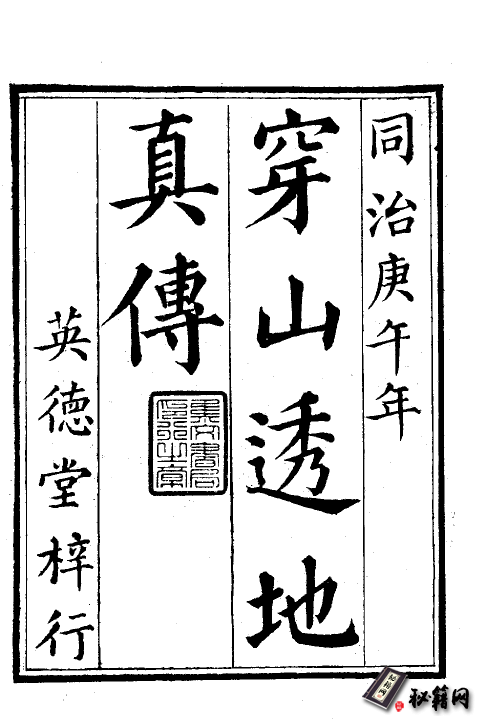 同治庚午年
穿山透地
真傳
英德堂梓行
秘籍网